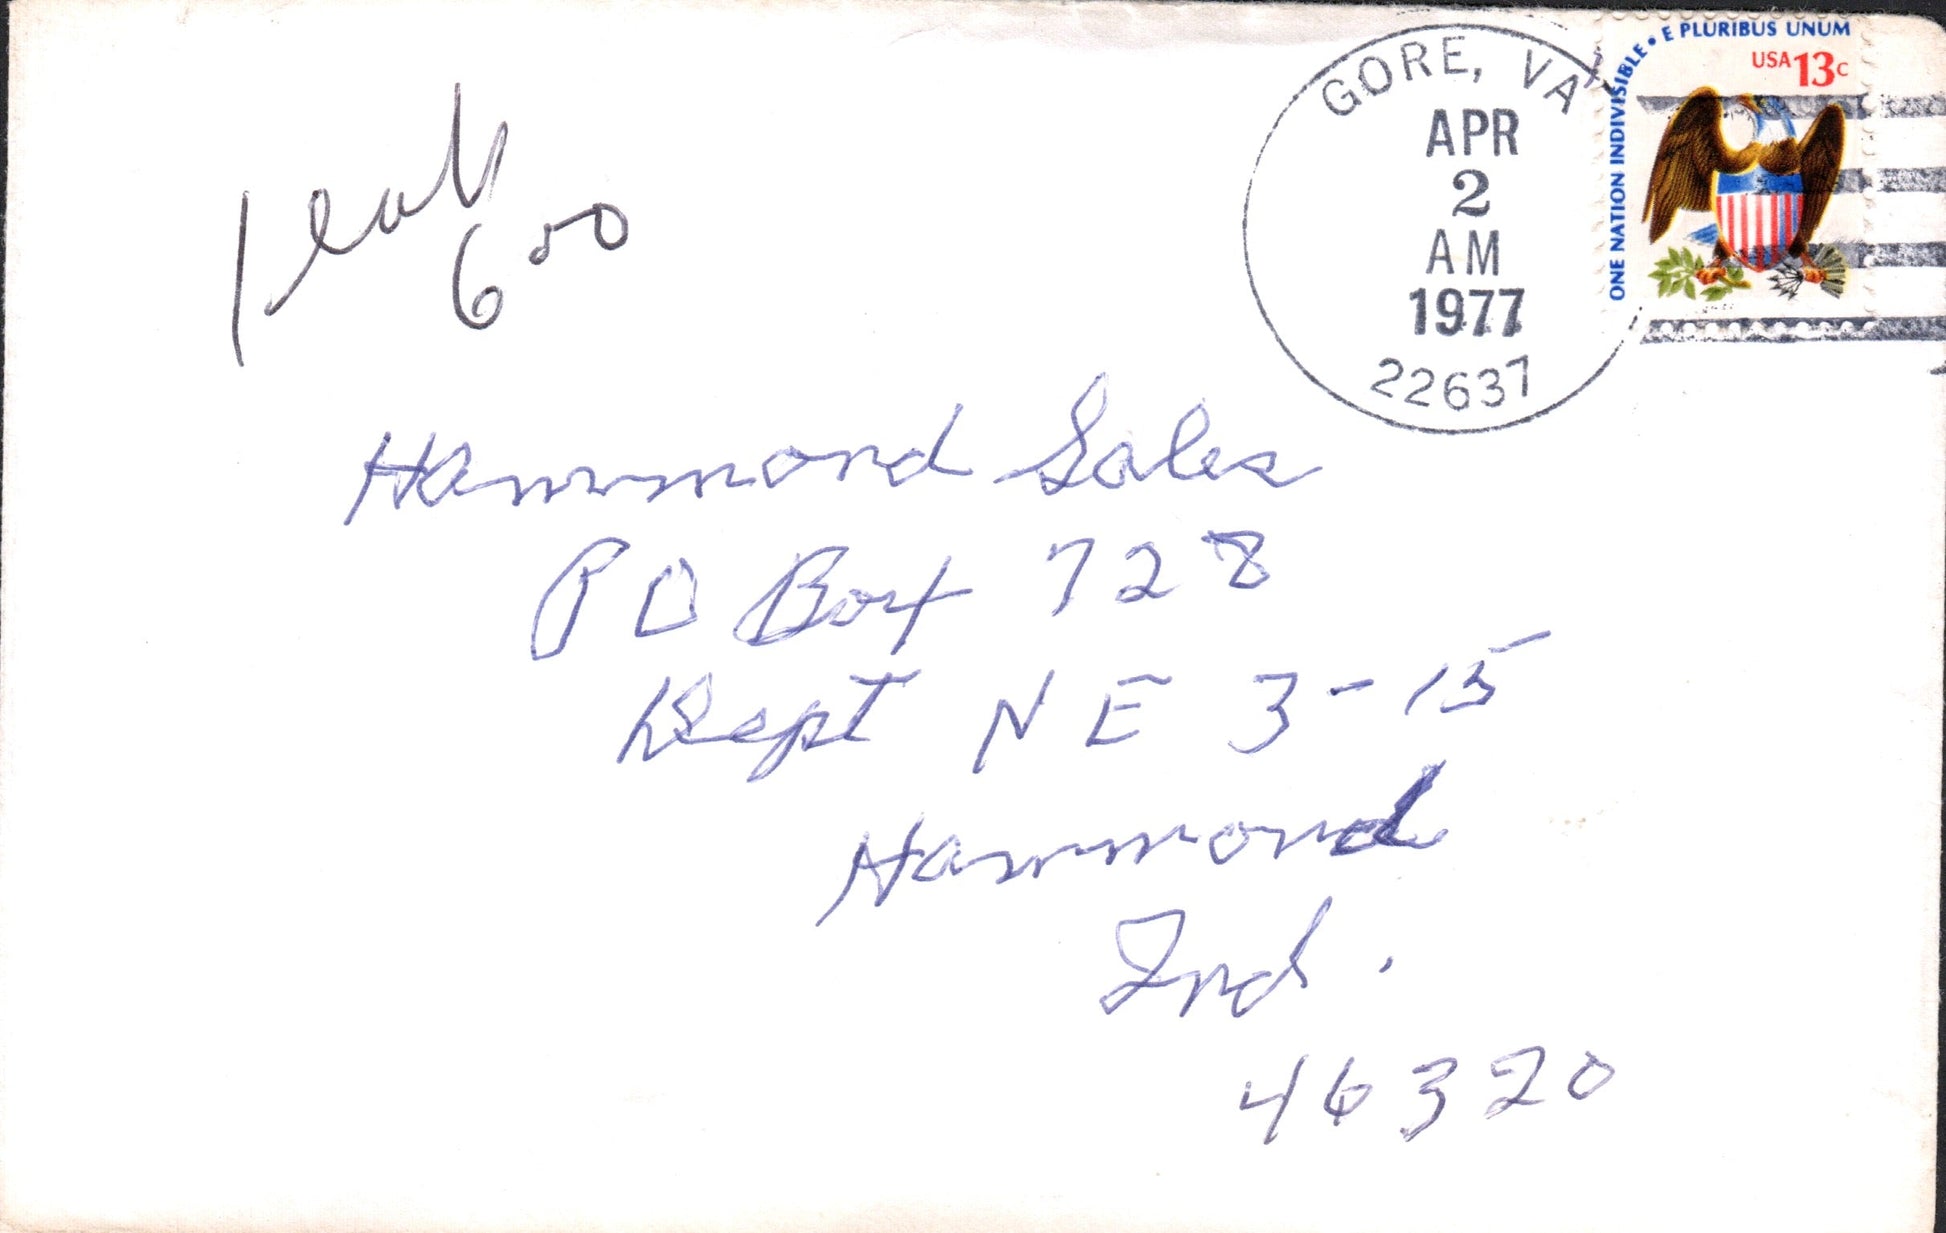 GORE, VA
APR
2
AM
1977
22637
ONE NATION INDIVISIBLE • E PLURIBUS UNUM
USA 13c
1 
600
Hammond Sales
PO Box 728
Dept NE 3-15
Hammond
Ind.
46320